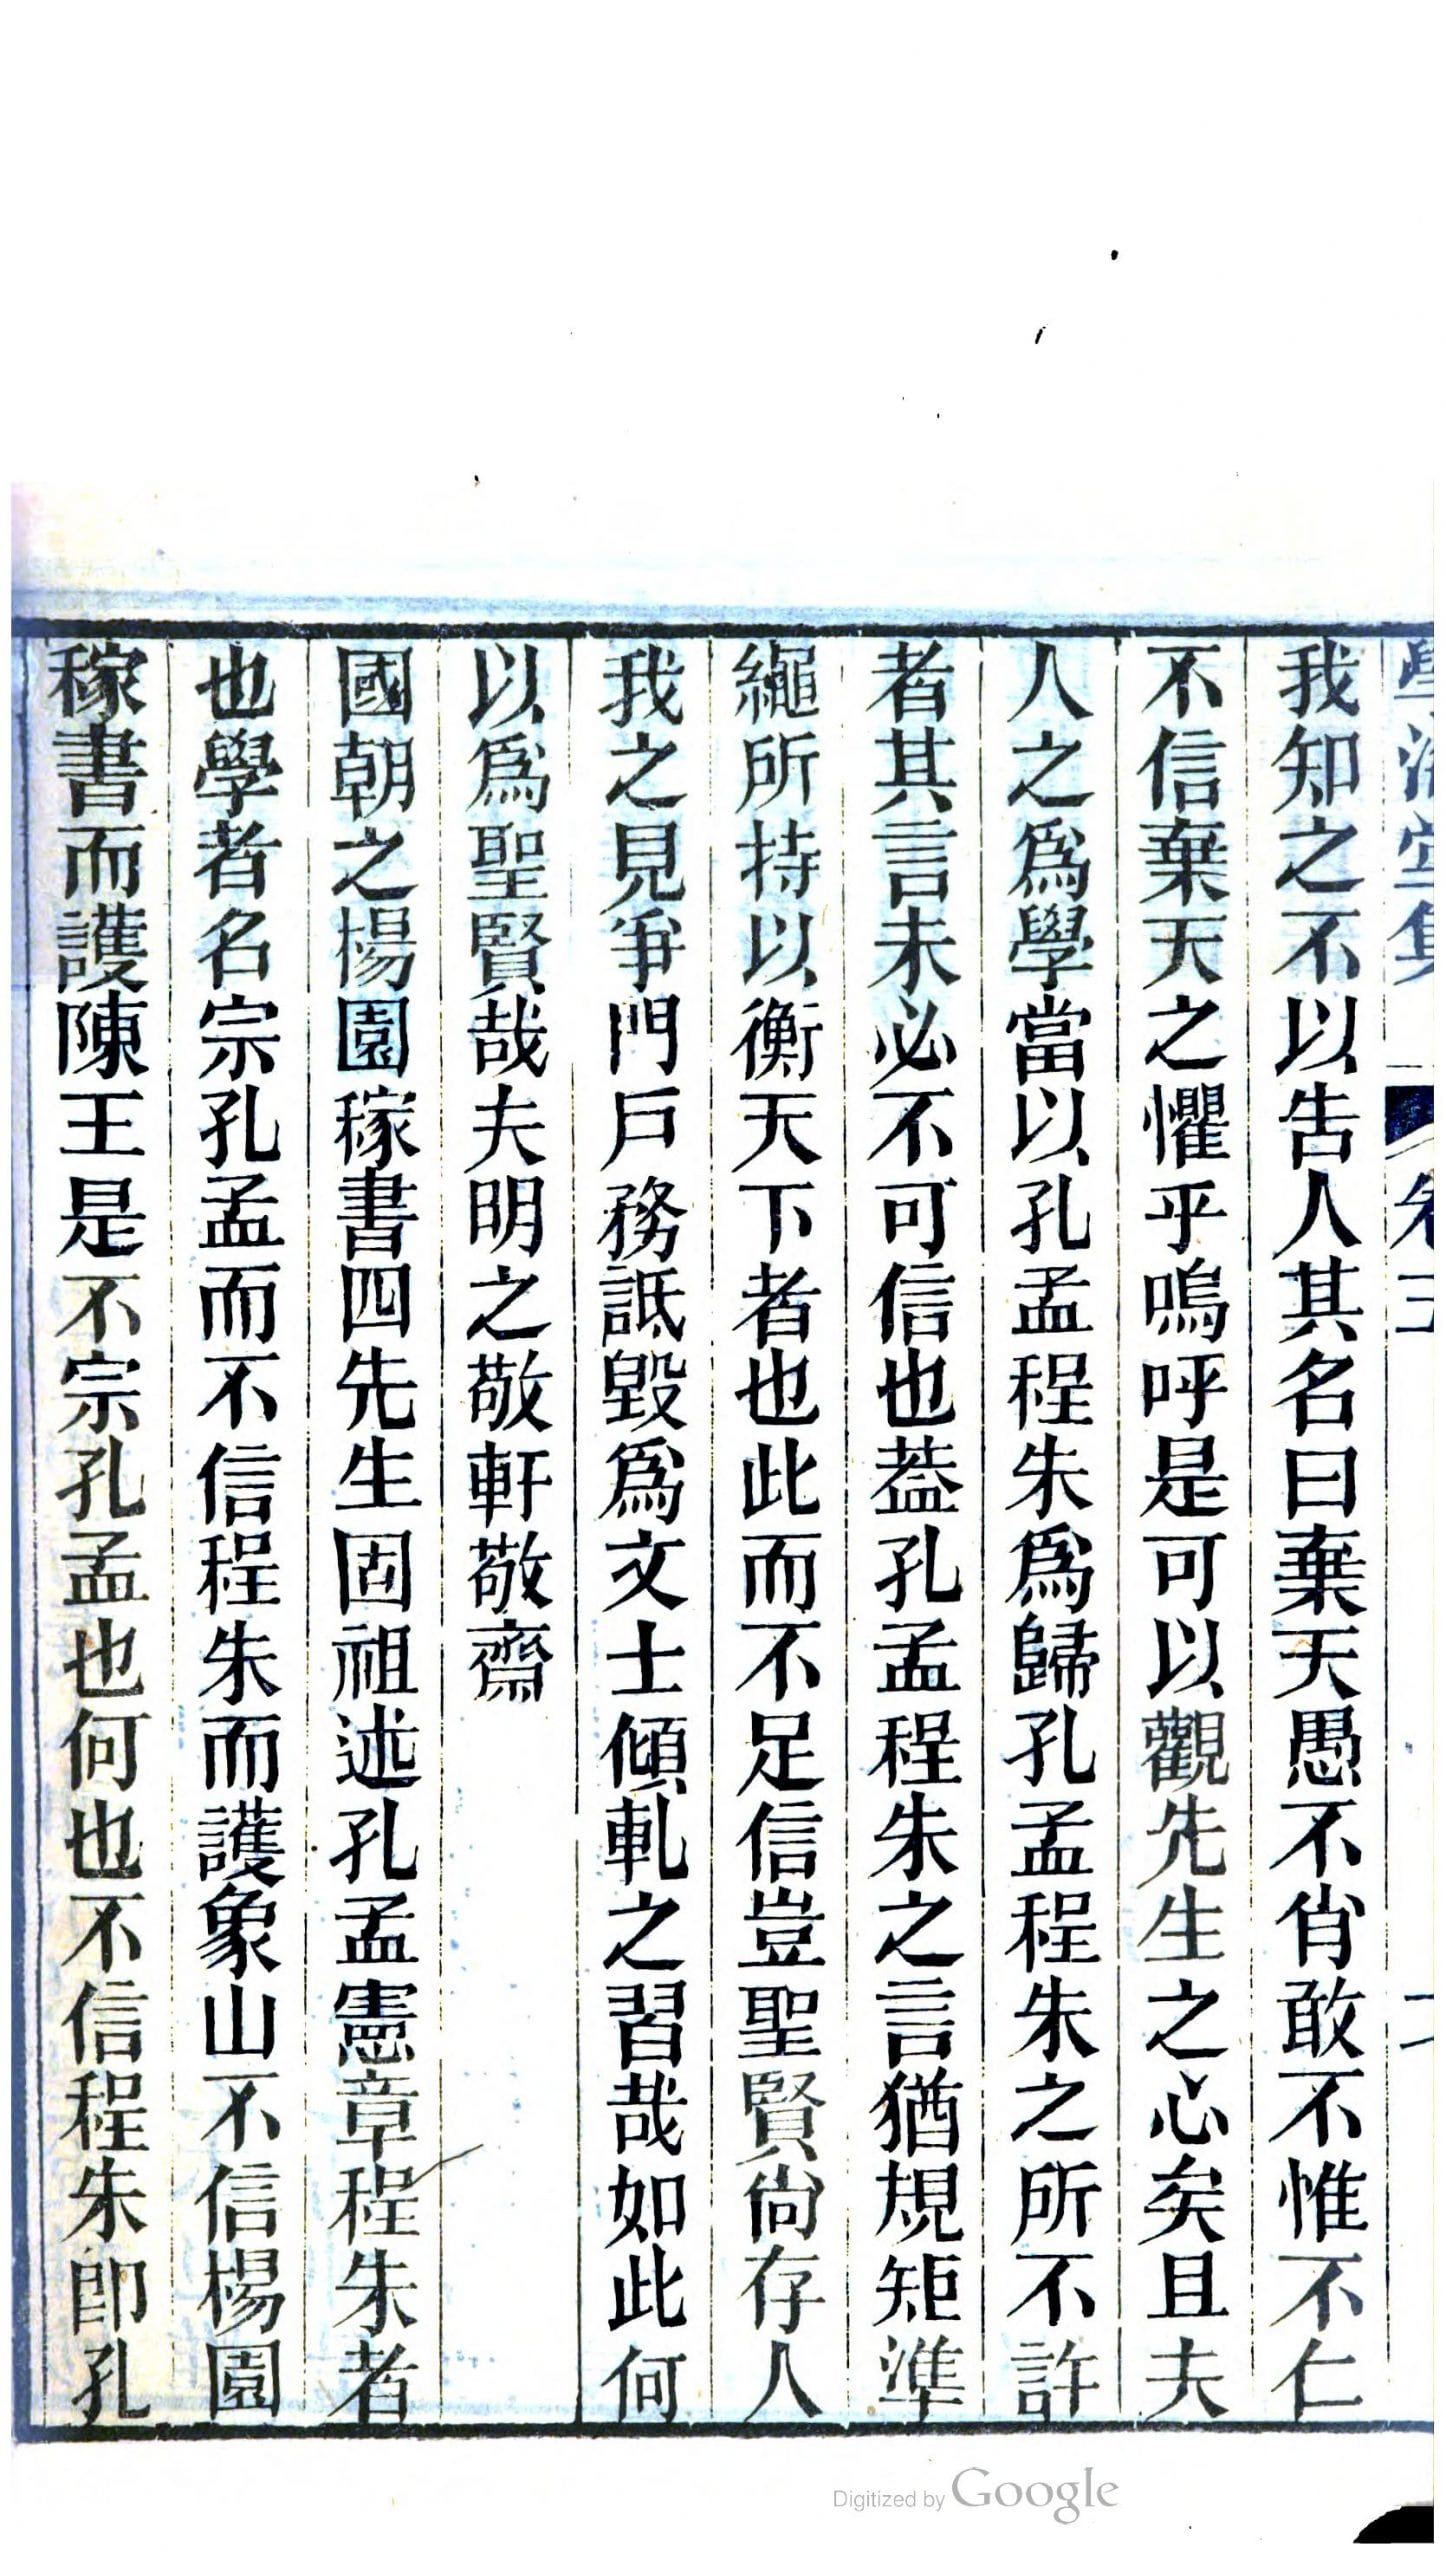 我知之不以告人其名曰棄天愚不肖敢不惟不仁
不信棄天之懼乎嗚呼是可以觀先生之心矣且夫
人之爲學當以孔孟程朱爲歸孔孟程朱之所不許
者其言未必不可信也葢孔孟程朱之言猶規矩準
繩所持以衡天下者也此而不足信豈聖賢尙存人
我之見爭門戶務詆毀爲文士傾軋之習哉如此何
以爲聖賢哉夫明之敬軒敬齋
國朝之楊園稼書四先生固祖述孔孟憲章程朱者
也學者名宗孔孟而不信程朱而護象山不信楊園
稼書而護陳王是不宗孔孟也何也不信程朱卽孔
Digitized by Google